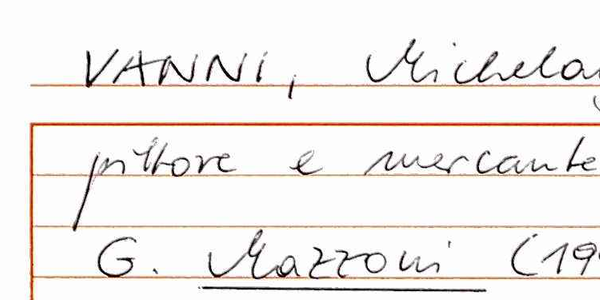 VANNI, Michelan
pittore e mercante
G. Mazzoni (19